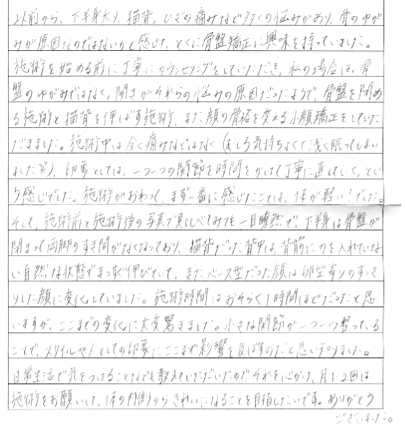 以前から、下半身太り、猫背、ひざの痛みなど多くの悩みがあり、骨のゆが
みが原因なのではないかと感じ、とくに骨盤矯正に興味を持っていました。
施術を始める前に丁寧にカウンセリングをしていただき、私の場合は、骨
盤のゆがみではなく、開きがそれらの悩みの原因だったようで、骨盤を閉め
る施術と猫背を伸ばす施術、また顔の骨格を変える小顔矯正をしていた
だきました。施術中は全く痛みなどはなく（むしろ気持ちよくて浅く眠ってしまい
ましたが）、印象としては、一つ一つの関節を時間をかけて丁寧に直していく、とい
う感じでした。施術がおわって、まず一番に感じたことは、体が軽い！でした。
そして、施術前と施術後の写真で見くらべてみても一目瞭然で、下半身は骨盤が
閉まって両脚のすき間がなくなっており、猫背だった背中は、背筋に力を入れていな
い自然な状態でまっすぐ伸びていて、またベース型だった顔は卵型寄りのすっき
りした顔に変化していました。施術時間はおそらく1時間ほどだったと思
いますが、ここまでの変化に大変驚きました。小さな関節が一つ一つ整っている
ことで、スタイルや人としての印象にここまで影響を及ぼすのだと思い知りました。
日常生活で気をつけることなども教えていただいたのでそれを心がけ、月1、2回は
施術をお願いして、体の内側からきれいになることを目指したいです。ありがとう
ございました。